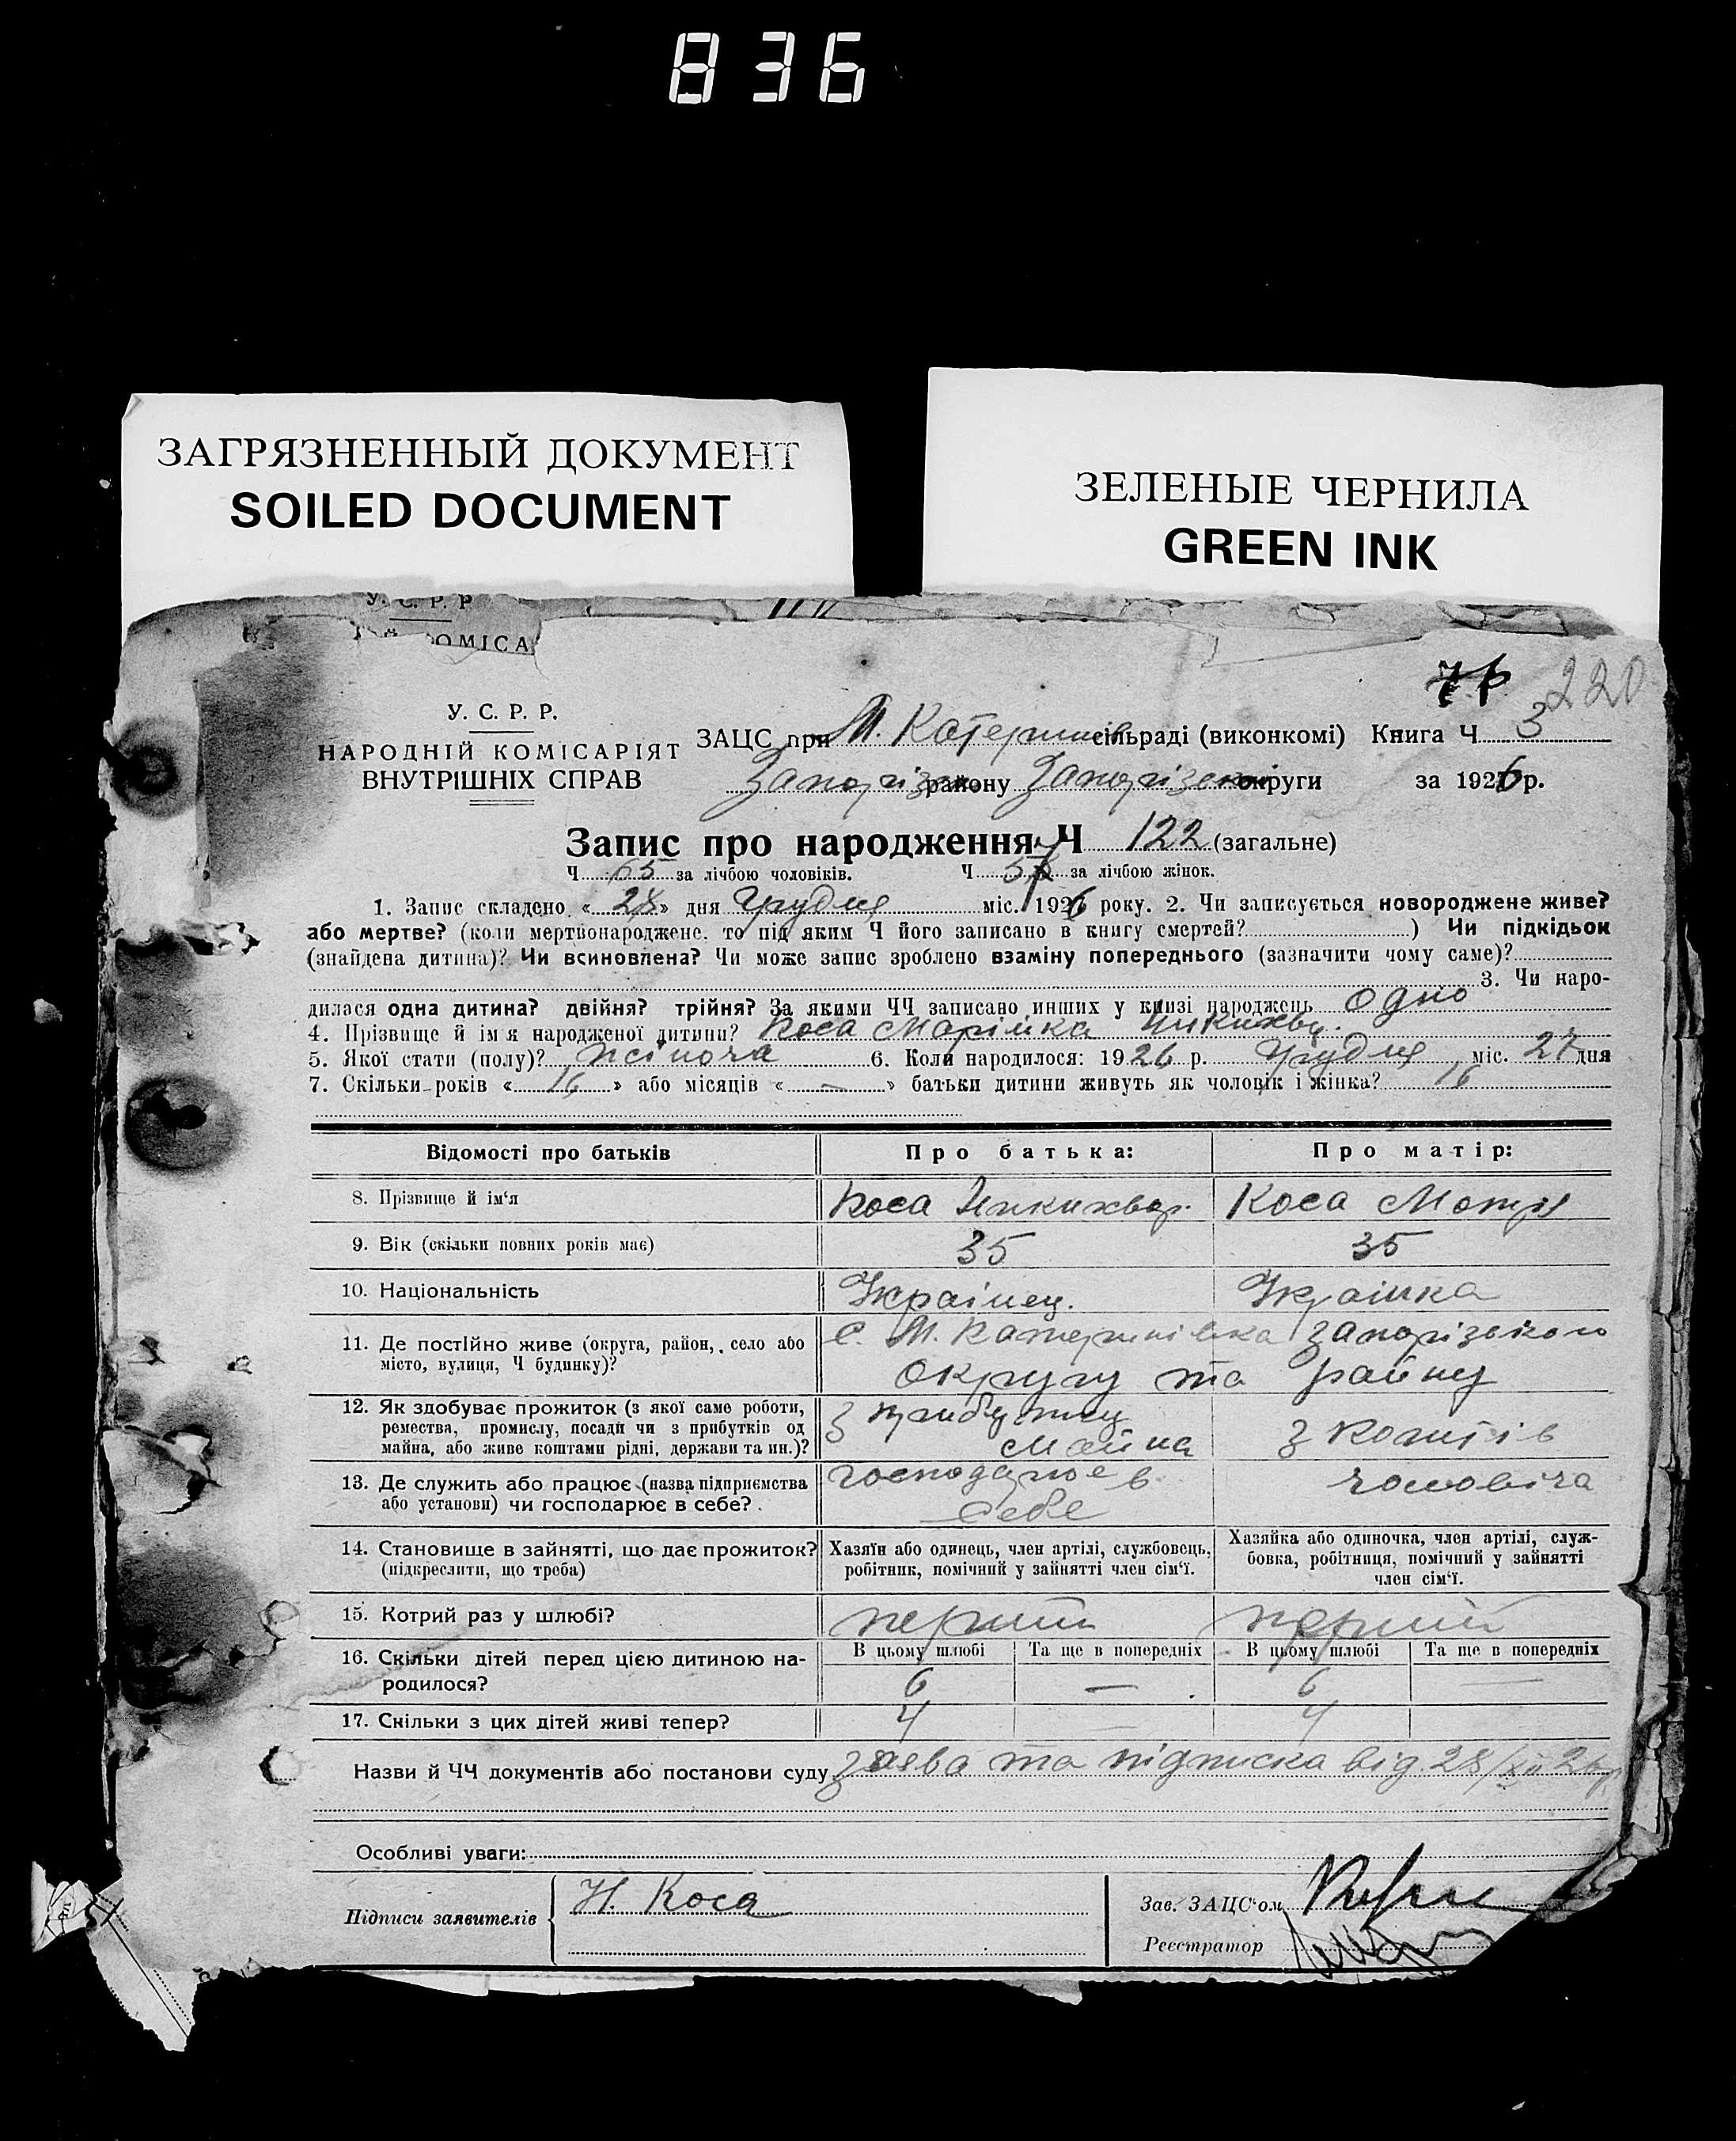 836
ЗАГРЯЗНЕННЫЙ ДОКУМЕНТ
SOILED DOCUMENT
ЗЕЛЕНЫЕ ЧЕРНИЛА
GREEN INK
У. С. Р. Р
ОМІСА
220
У. С. Р. Р.
НАРОДНІЙ КОМІСАРІЯТ
ВНУТРІШНІХ СПРАВ
ЗАЦС при М. Катерин сільраді (виконкомі) Книга Ч 3
Запоріз району Запорізької округи за 1926 р.
Запис про народження Ч 122 (загальне)
Ч 65 за лічбою чоловіків. Ч 57 за лічбою жінок.
1. Запис складено «28» дня Грудня міс. 1926 року. 2. Чи записується новороджене живе?
або мертве? (коли мертвонароджене, то під яким Ч його записано в книгу смертей? ) Чи підкідьок
(знайдена дитина)? Чи всиновлена? Чи може запис зроблено взаміну попереднього (зазначити чому саме)?
3. Чи наро-
дилася одна дитина? двійня? трійня? За якими ЧЧ записано инших у книзі народжень одно
4. Прізвище й ім'я народженої дитини? Коса Марійка Никихвор.
5. Якої статі (полу)? жіноча 6. Коли народилося: 1926 р. Грудня міс. 27 дня
7. Скільки років «16» або місяців «—» батьки дитини живуть як чоловік і жінка? 16
Відомості про батьків Про батька: Про матір:
8. Прізвище й ім'я Коса Никихвор. Коса Мотря
9. Вік (скільки повних років має) 35 35
10. Національність Украінец. Украінка
11. Де постійно живе (округа, район, село або
місто, вулиця, Ч будинку)?
с. М. Катеринівка Запорізького
округу та району
12. Як здобуває прожиток (з якої саме роботи,
ремества, промислу, посади чи з прибутків од
майна, або живе коштами рідні, держави та ин.)?
з прибутку
майна
з коштів
13. Де служить або працює (назва підприємства
або установи) чи господарює в себе?
господарює в
себе
чоловіча
14. Становище в зайнятті, що дає прожиток?
(підкреслити, що треба)
Хазяїн або одинець, член артілі, службовець,
робітник, помічний у зайнятті член сім'ї.
Хазяйка або одиночка, член артілі, служ-
бовка, робітниця, помічний у зайнятті
член сім'ї.
15. Котрий раз у шлюбі? перший перший
16. Скільки дітей перед цією дитиною на-
родилося?
В цьому шлюбі Та ще в попередніх В цьому шлюбі Та ще в попередніх
6 — 6 —
17. Скільки з цих дітей живі тепер? 4 — 4
Назви й ЧЧ документів або постанови суду заява та підписка від 28/XII 26р
Особливі уваги:
Підписи заявителів Н. Коса
Зав. ЗАЦС'ом
Реєстратор